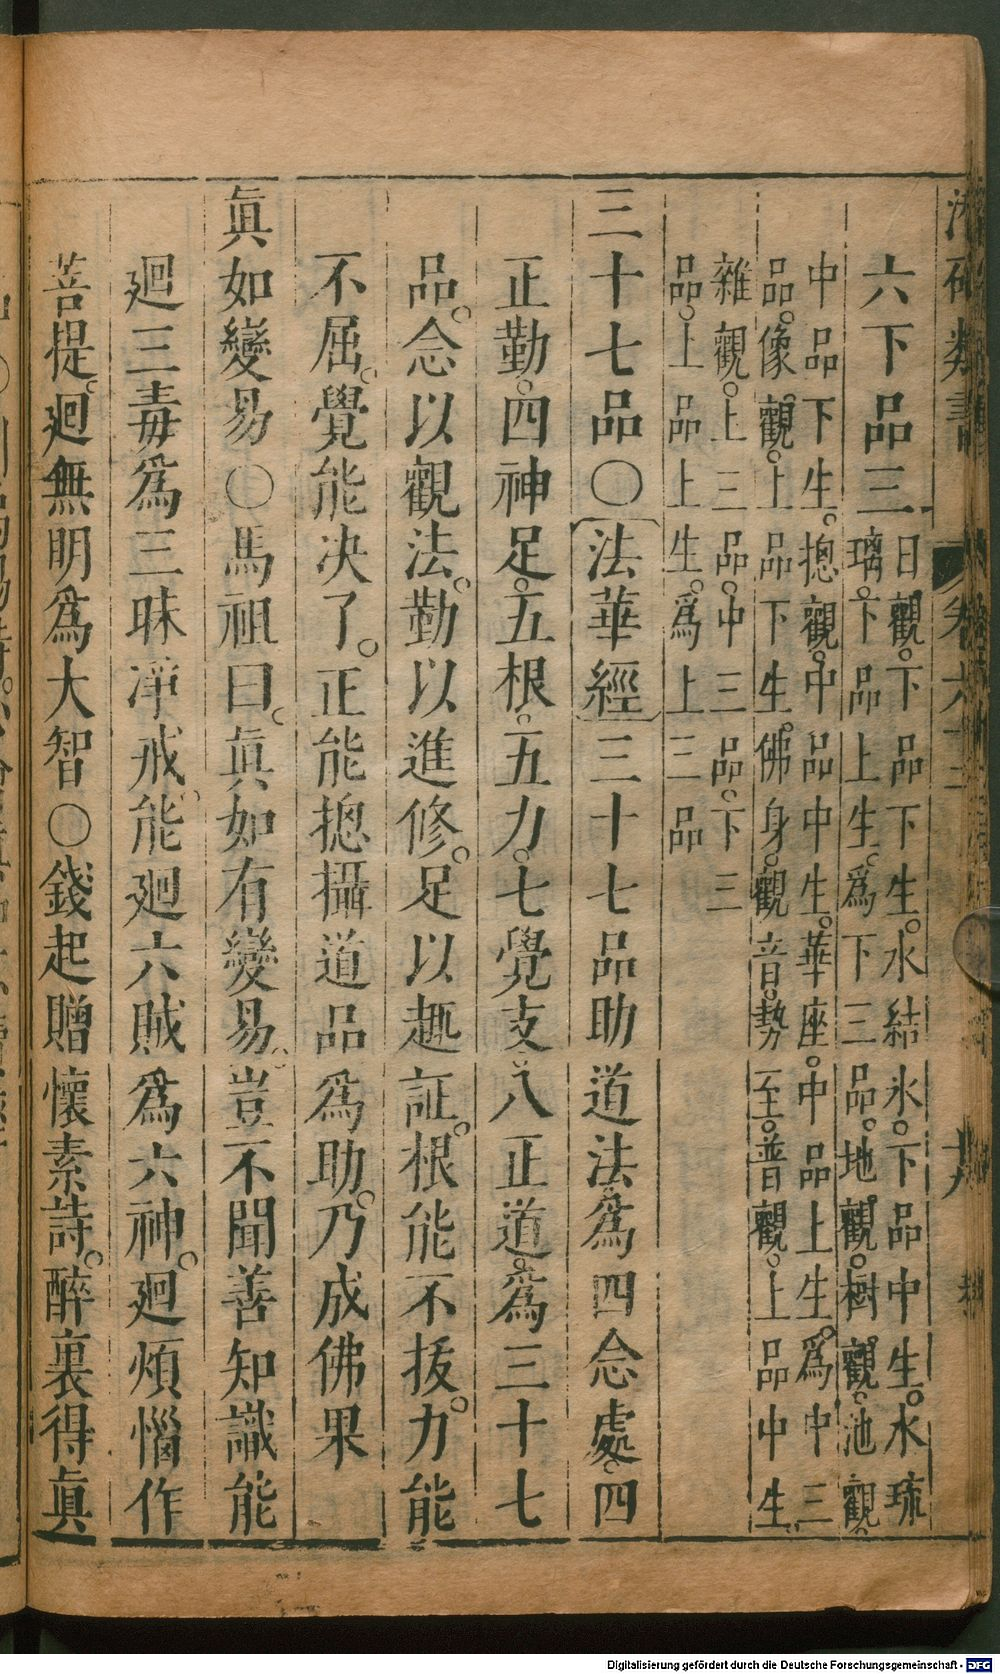 類書
卷六十三
六下品三
日觀。下品下生。水結氷。下品中生。水琉
璃。下品上生。爲下三品。地觀。樹觀。池觀。
中品下生。摠觀。中品中生。華座。中品上生。爲中三
品。像觀。上品下生。佛身。觀音。勢至。普觀。上品中生。
雜觀。上三品。中三品。下三
品。上品上生。爲上三品
三十七品〇〔法華經〕三十七品助道法。爲四念處。四
正勤。四神足。五根。五力。七覺支。八正道。爲三十七
品。念以觀法。勤以進修。足以趣証。根能不拔。力能
不屈。覺能决了。正能摠攝道品爲助。乃成佛果
眞如變易〇馬祖曰。眞如有變易。豈不聞善知識能
廻三毒爲三昧淨戒。能廻六賊爲六神。廻煩惱作
菩提。廻無明爲大智〇錢起贈懷素詩。醉裏得眞
Digitalisierung gefördert durch die Deutsche Forschungsgemeinschaft - DFG